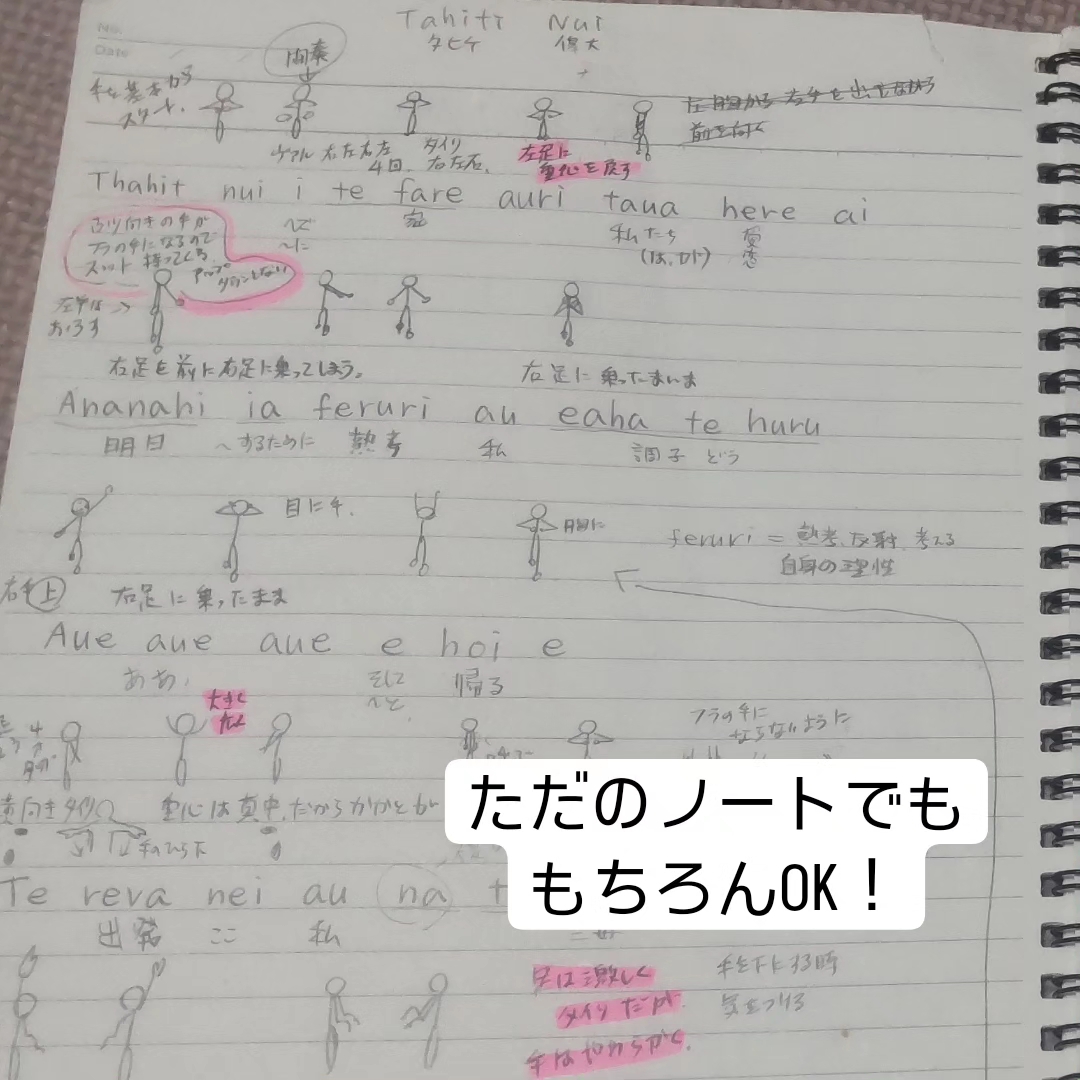 No.
Date
Tahiti Nui
タヒチ 偉大
間奏
手を基本から
スタート.
左胸から右手を出しながら
前を向く
ヴァル 右左右左 タイリ
4回. 右左右.
左足に
重心を戻す
Thahit nui i te fare auri taua here ai
家
私たち 愛
(は、が) 恋
〜で
〜に
フラの手になるので
スッと 持ってくる
アップ
ダウンしない
左手は→
おろす
右足を前に右足に乗ってしまう。
右足に乗ったまま
Ananahi ia feruri au eaha te huru
明日 〜するために 熟考 私 調子 どう
目に手.
胸に
feruri = 熟考、反射、考える
自身の理性
右手上 右足に乗ったまま
Aue aue aue e hoi e
ああ、 そして 帰る
〜と、
大きく
フラの手に
ならないように
横向きタイリ 重心は真中.だからかかとが
手のひら下
ただのノートでも
もちろんOK！
Te reva nei au na t
出発 ここ 私
足は激しく
タイリだが
手はやわらかく.
手を下にする時
気をつける